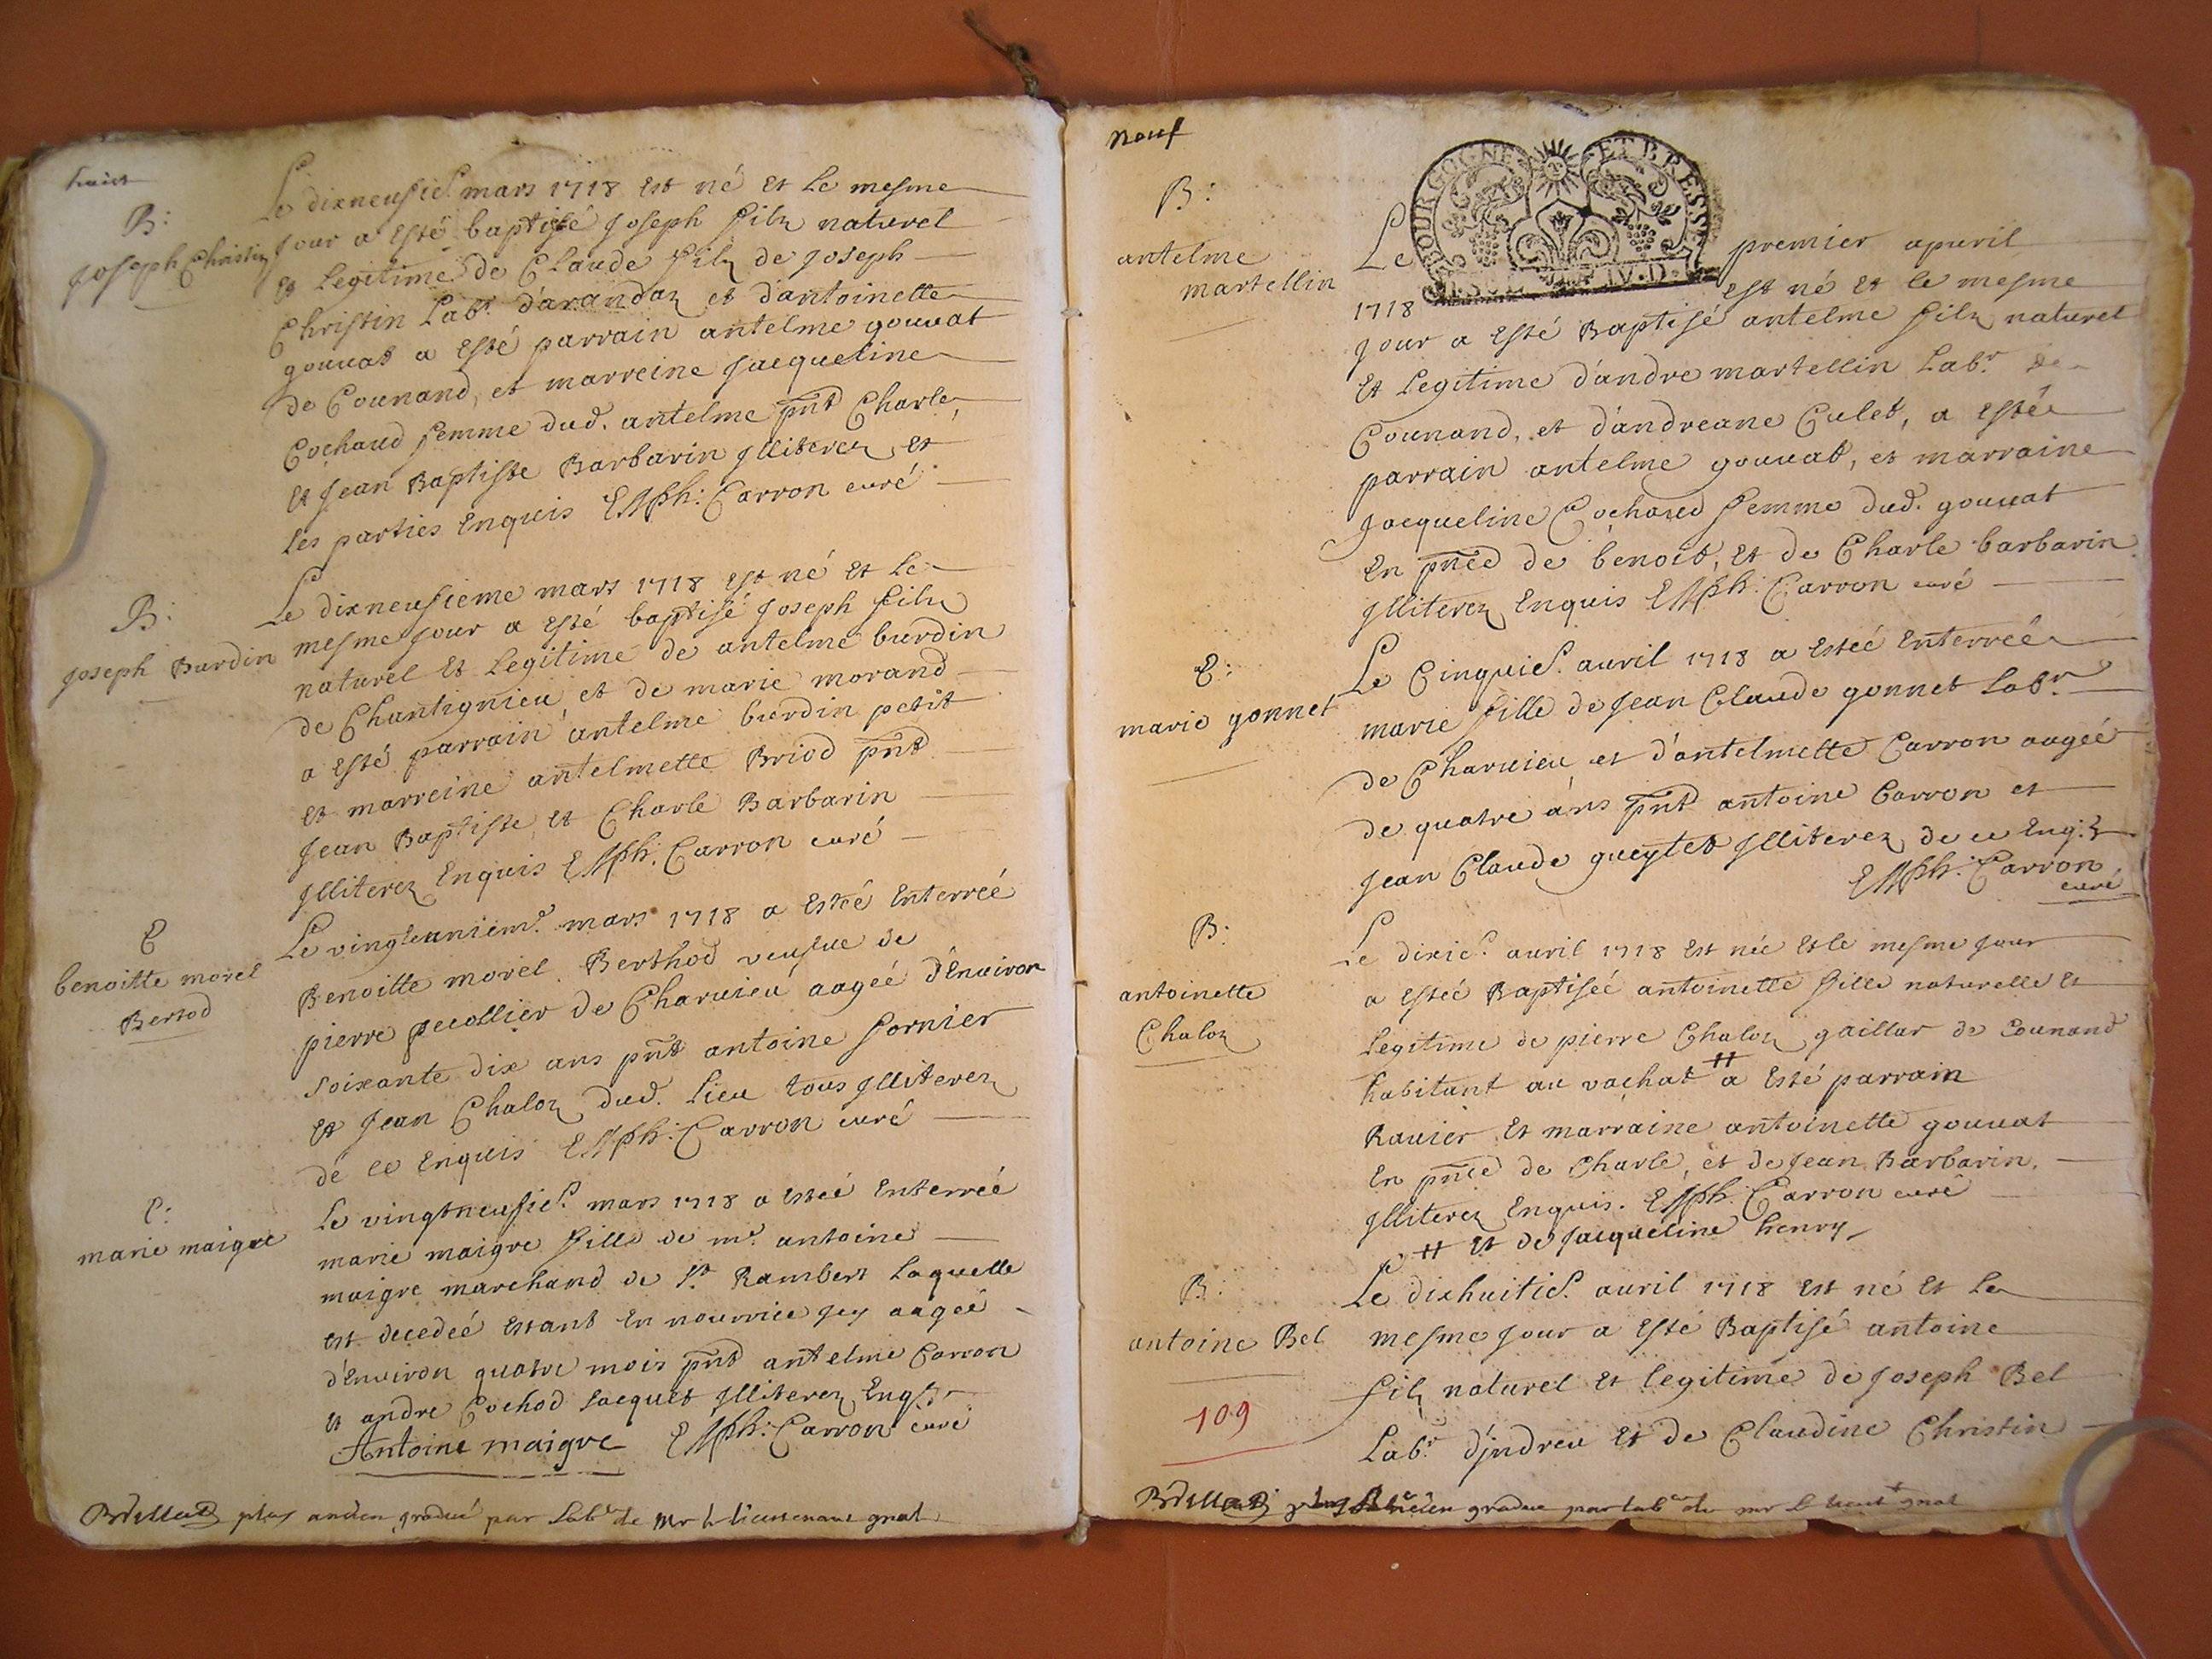 huict
B:
Joseph Christin
Le dixneufie. mars 1718 est né et le mesme
jour a esté baptisé Joseph filz naturel
et legitime de Claude filz de Joseph
Christin Labr. d'arandaz et d'antoinette
gouuat a esté parrain antelme gouuat
de Counand, et marreine Jacqueline
Cochaud femme dud. antelme pnt Charle
et Jean Baptiste Barbarin Illiterez et
les parties Enquis Carron curé
B:
Joseph Burdin
Le dixneufieme mars 1718 est né et le
mesme jour a esté baptisé Joseph filz
naturel et legitime de antelme burdin
de Chantignieu, et de marie morand
a esté parrain antelme burdin petit
et marreine antelmette Briod pnt
Jean Baptiste et Charle Barbarin
Illiterez Enquis Carron curé
E
benoitte morel
Bertod
Le vingteuniem.e mars 1718 a esteé Enterreé
Benoitte morel Berthod veufue de
pierre pecollier de Charuieu aageé d'Enuiron
soixante dix ans pnt antoine fornier
et Jean Chaloz dud. lieu tous Illiterez
de ce Enquis Carron curé
E:
marie maigre
Le vingtneufie. mars 1718 a esteé Enterreé
marie maigre fille de mre. antoine
maigre marchand de St. Rambert laquelle
est decedeé estant en nourrice jcy aageé
d'Enuiron quatre mois pnt antelme Carron
et andre Cochod Jacquet Illiterez Enq.
Antoine maigre Carron curé
plus ancien gradué par Labce de Mr le lieutenant gnal
neuf
TOUR GOGNE ET BRESSE
B:
antelme
martellin
Le premier apuril
1718 est né et le mesme
jour a esté Baptisé antelme filz naturel
et legitime d'andre martellin Labr. de
Counand, et d'andreane Culet, a esté
parrain antelme gouuat, et marraine
Jacqueline Cochaud femme dud. gouuat
En pnce de benoit, et de Charle barbarin
Illiterez Enquis Carron curé
E:
marie gonnet
Le Cinquie. auril 1718 a esteé Enterreé
marie fille de Jean Claude gonnet Labr
de Charuieu et d'antelmette Carron aageé
de quatre ans pnt antoine Carron et
Jean Claude gueytet Illiterez de ce Enq.
Carron
curé
B:
antoinette
Chaloz
Le dixie. auril 1718 est neé et le mesme jour
a esteé Baptiseé antoinette fille naturelle et
legitime de pierre Chaloz gaillar de Counand
habitant au vachat # a esté parrain
Rauier et marraine antoinette gouuat
En pnce de Charle, et de Jean Barbarin.
Illiterez Enquis. Carron curé
# et de Jacqueline henry
B:
antoine Bel
Le dixhuitie. auril 1718 est né et le
mesme jour a esté Baptisé antoine
filz naturel et legitime de Joseph Bel
Labr d'jndreu et de Claudine Christin
109
plus ancien gradue par labce de mr le lieut gnal